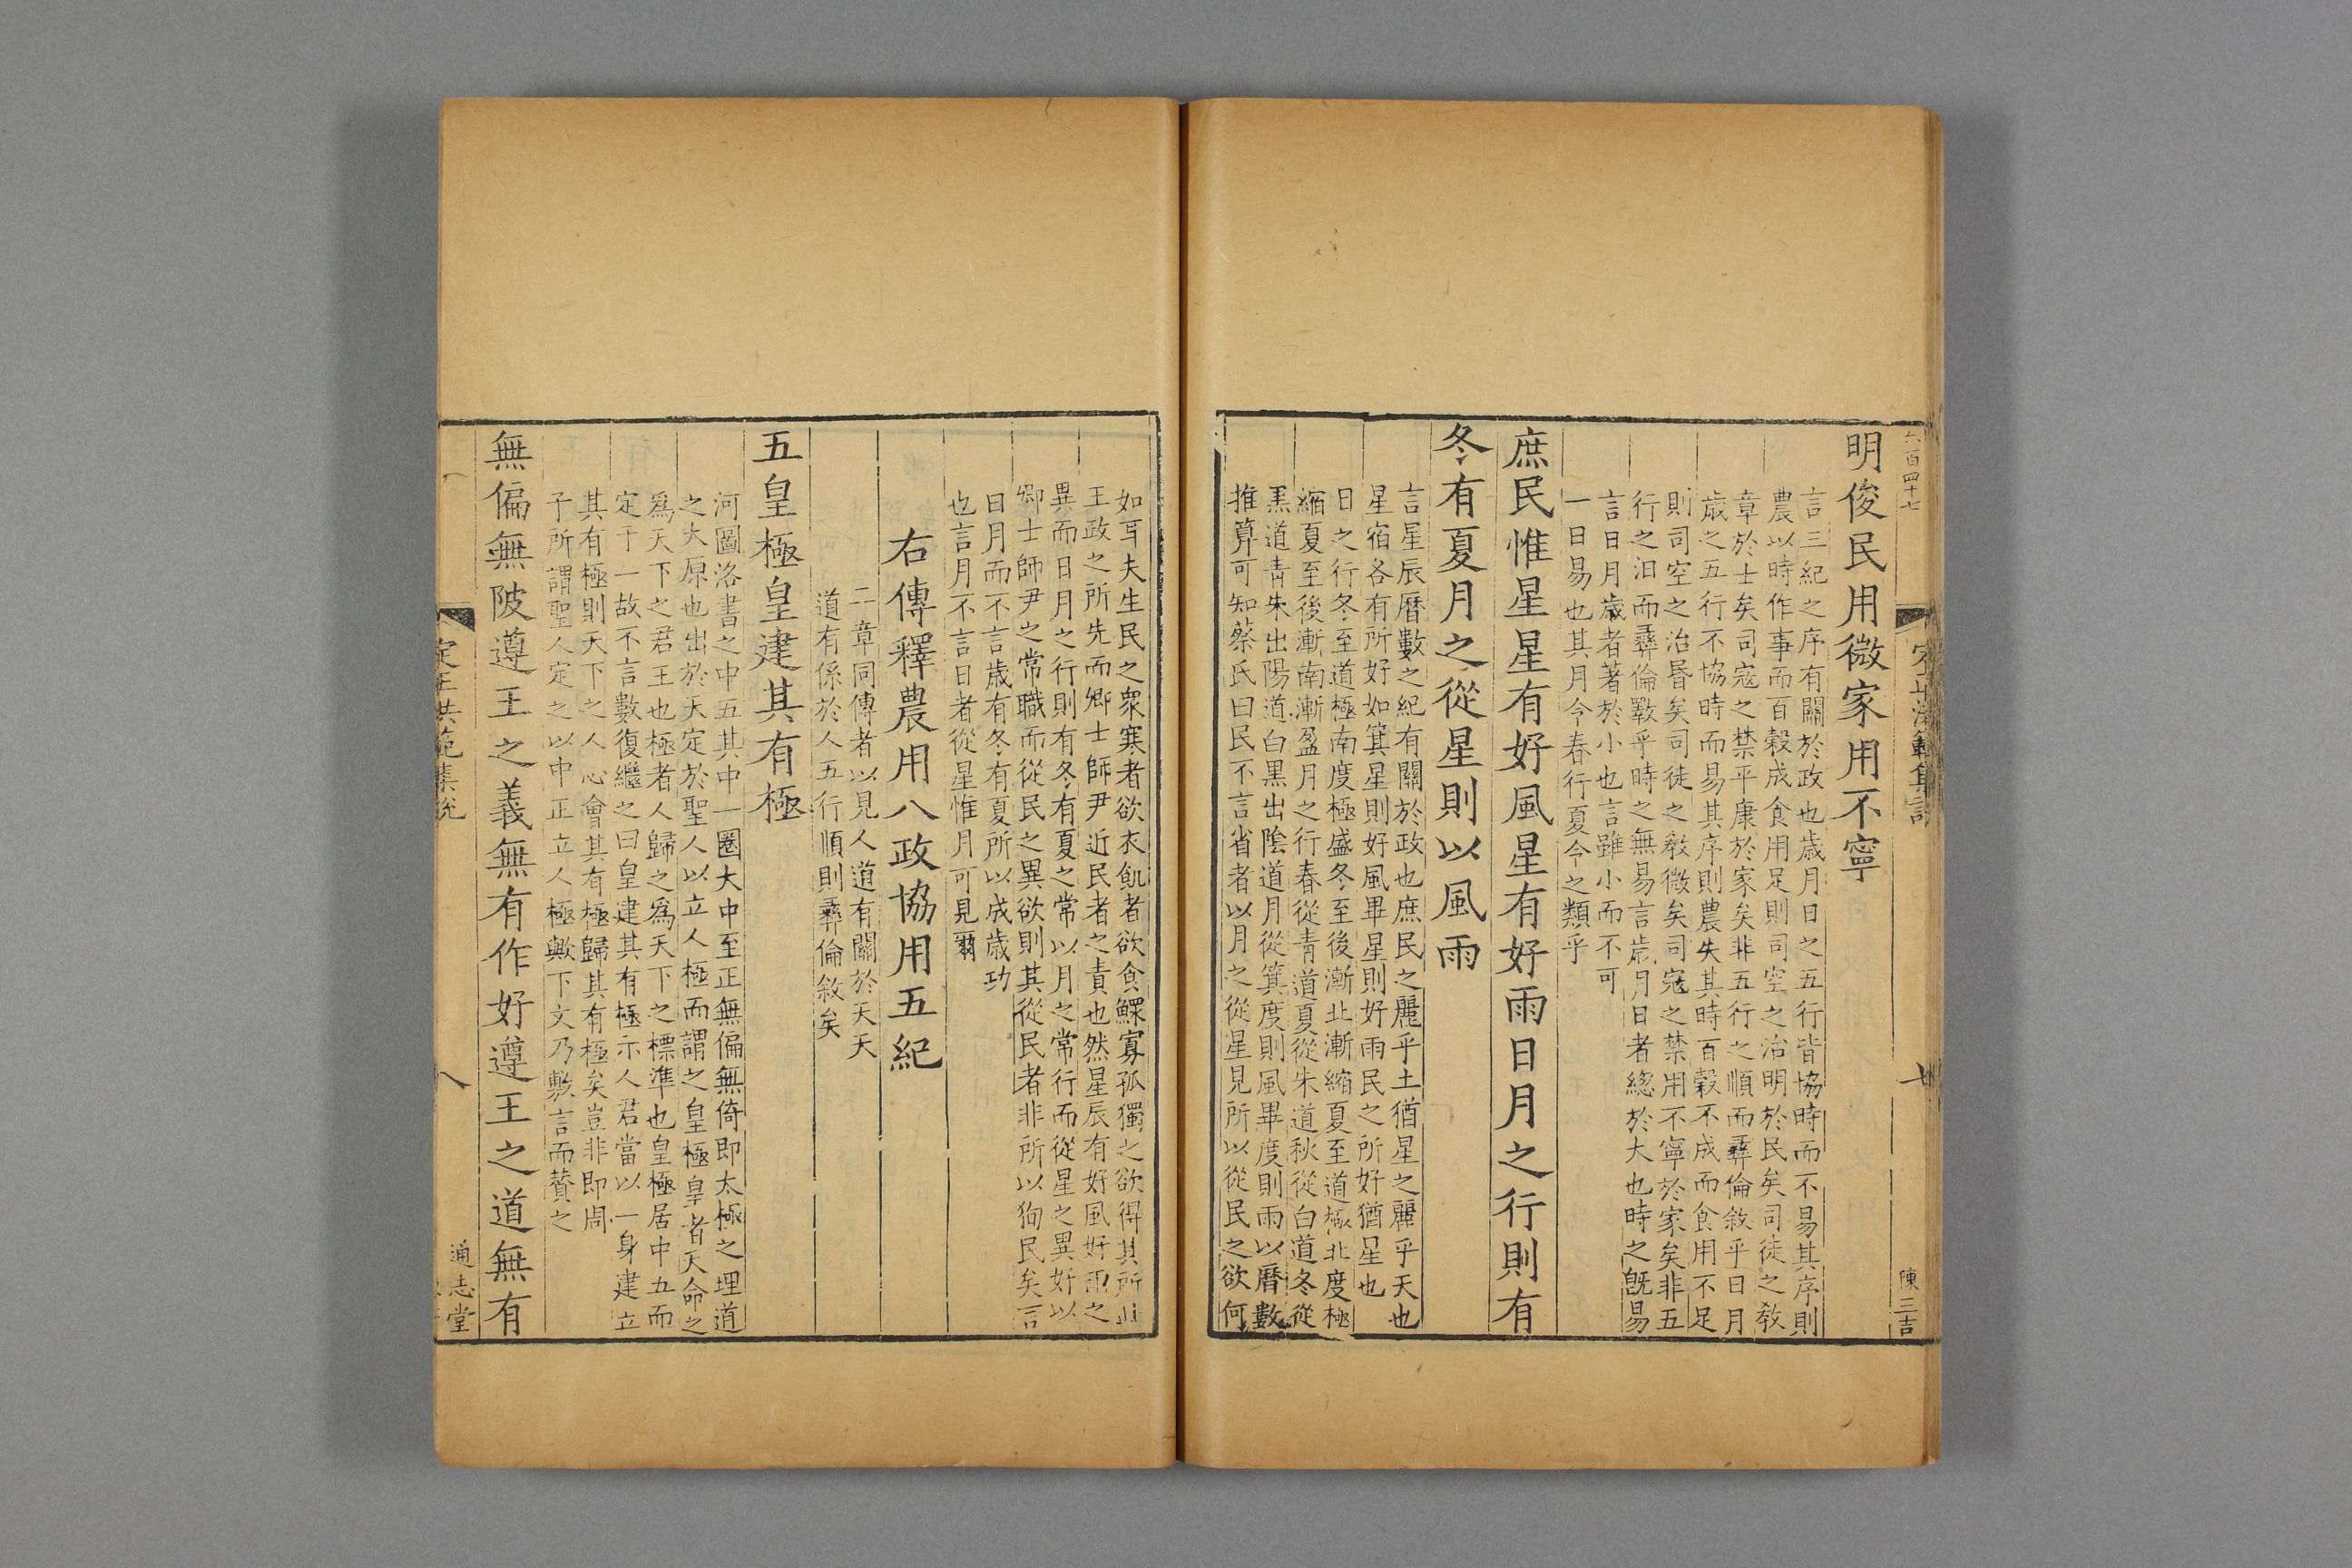 六百四十七
定正洪範集說
七
陳三吉
明俊民用微家用不寧
言三紀之序有關於政也歲月日之五行皆協時而不易其序則
農以時作事而百穀成食用足則司空之治明於民矣司徒之敎
章於士矣司寇之禁平康於家矣非五行之順而彞倫敘乎日月
歲之五行不協時而易其序則農失其時百穀不成而食用不足
則司空之治昬矣司徒之敎微矣司寇之禁用不寧於家矣非五
行之汨而彞倫斁乎時之無易言歲月日者總於大也時之旣易
言日月歲者著於小也言雖小而不可
一日易也其月令春行夏令之類乎
庶民惟星星有好風星有好雨日月之行則有
冬有夏月之從星則以風雨
言星辰曆數之紀有關於政也庶民之麗乎土猶星之麗乎天也
星宿各有所好如箕星則好風畢星則好雨民之所好猶星也
日之行冬至道極南度極盛冬至後漸北漸縮夏至道極北度極
縮夏至後漸南漸盈月之行春從靑道夏從朱道秋從白道冬從
黑道靑朱出陽道白黑出陰道月從箕度則風畢度則雨以曆數
推算可知蔡氏曰民不言省者以月之從星見所以從民之欲何
如耳夫生民之衆寒者欲衣飢者欲食鰥寡孤獨之欲得其所此
王政之所先而卿士師尹近民者之責也然星辰有好風好雨之
異而日月之行則有冬有夏之常以月之常行而從星之異好以
卿士師尹之常職而從民之異欲則其從民者非所以狥民矣言
日月而不言歲有冬有夏所以成歲功
也言月不言日者從星惟月可見爾
右傳釋農用八政協用五紀
二章同傳者以見人道有關於天天
道有係於人五行順則彞倫敘矣
五皇極皇建其有極
河圖洛書之中五其中一圈大中至正無偏無倚即太極之理道
之大原也出於天定於聖人以立人極而謂之皇極皇者天命之
爲天下之君王也極者人歸之爲天下之標準也皇極居中五而
定于一故不言數復繼之曰皇建其有極示人君當以一身建立
其有極則天下之人心會其有極歸其有極矣豈非即周
子所謂聖人定之以中正立人極歟下文乃敷言而贊之
無偏無陂遵王之義無有作好遵王之道無有
定正洪範集說
八
通志堂